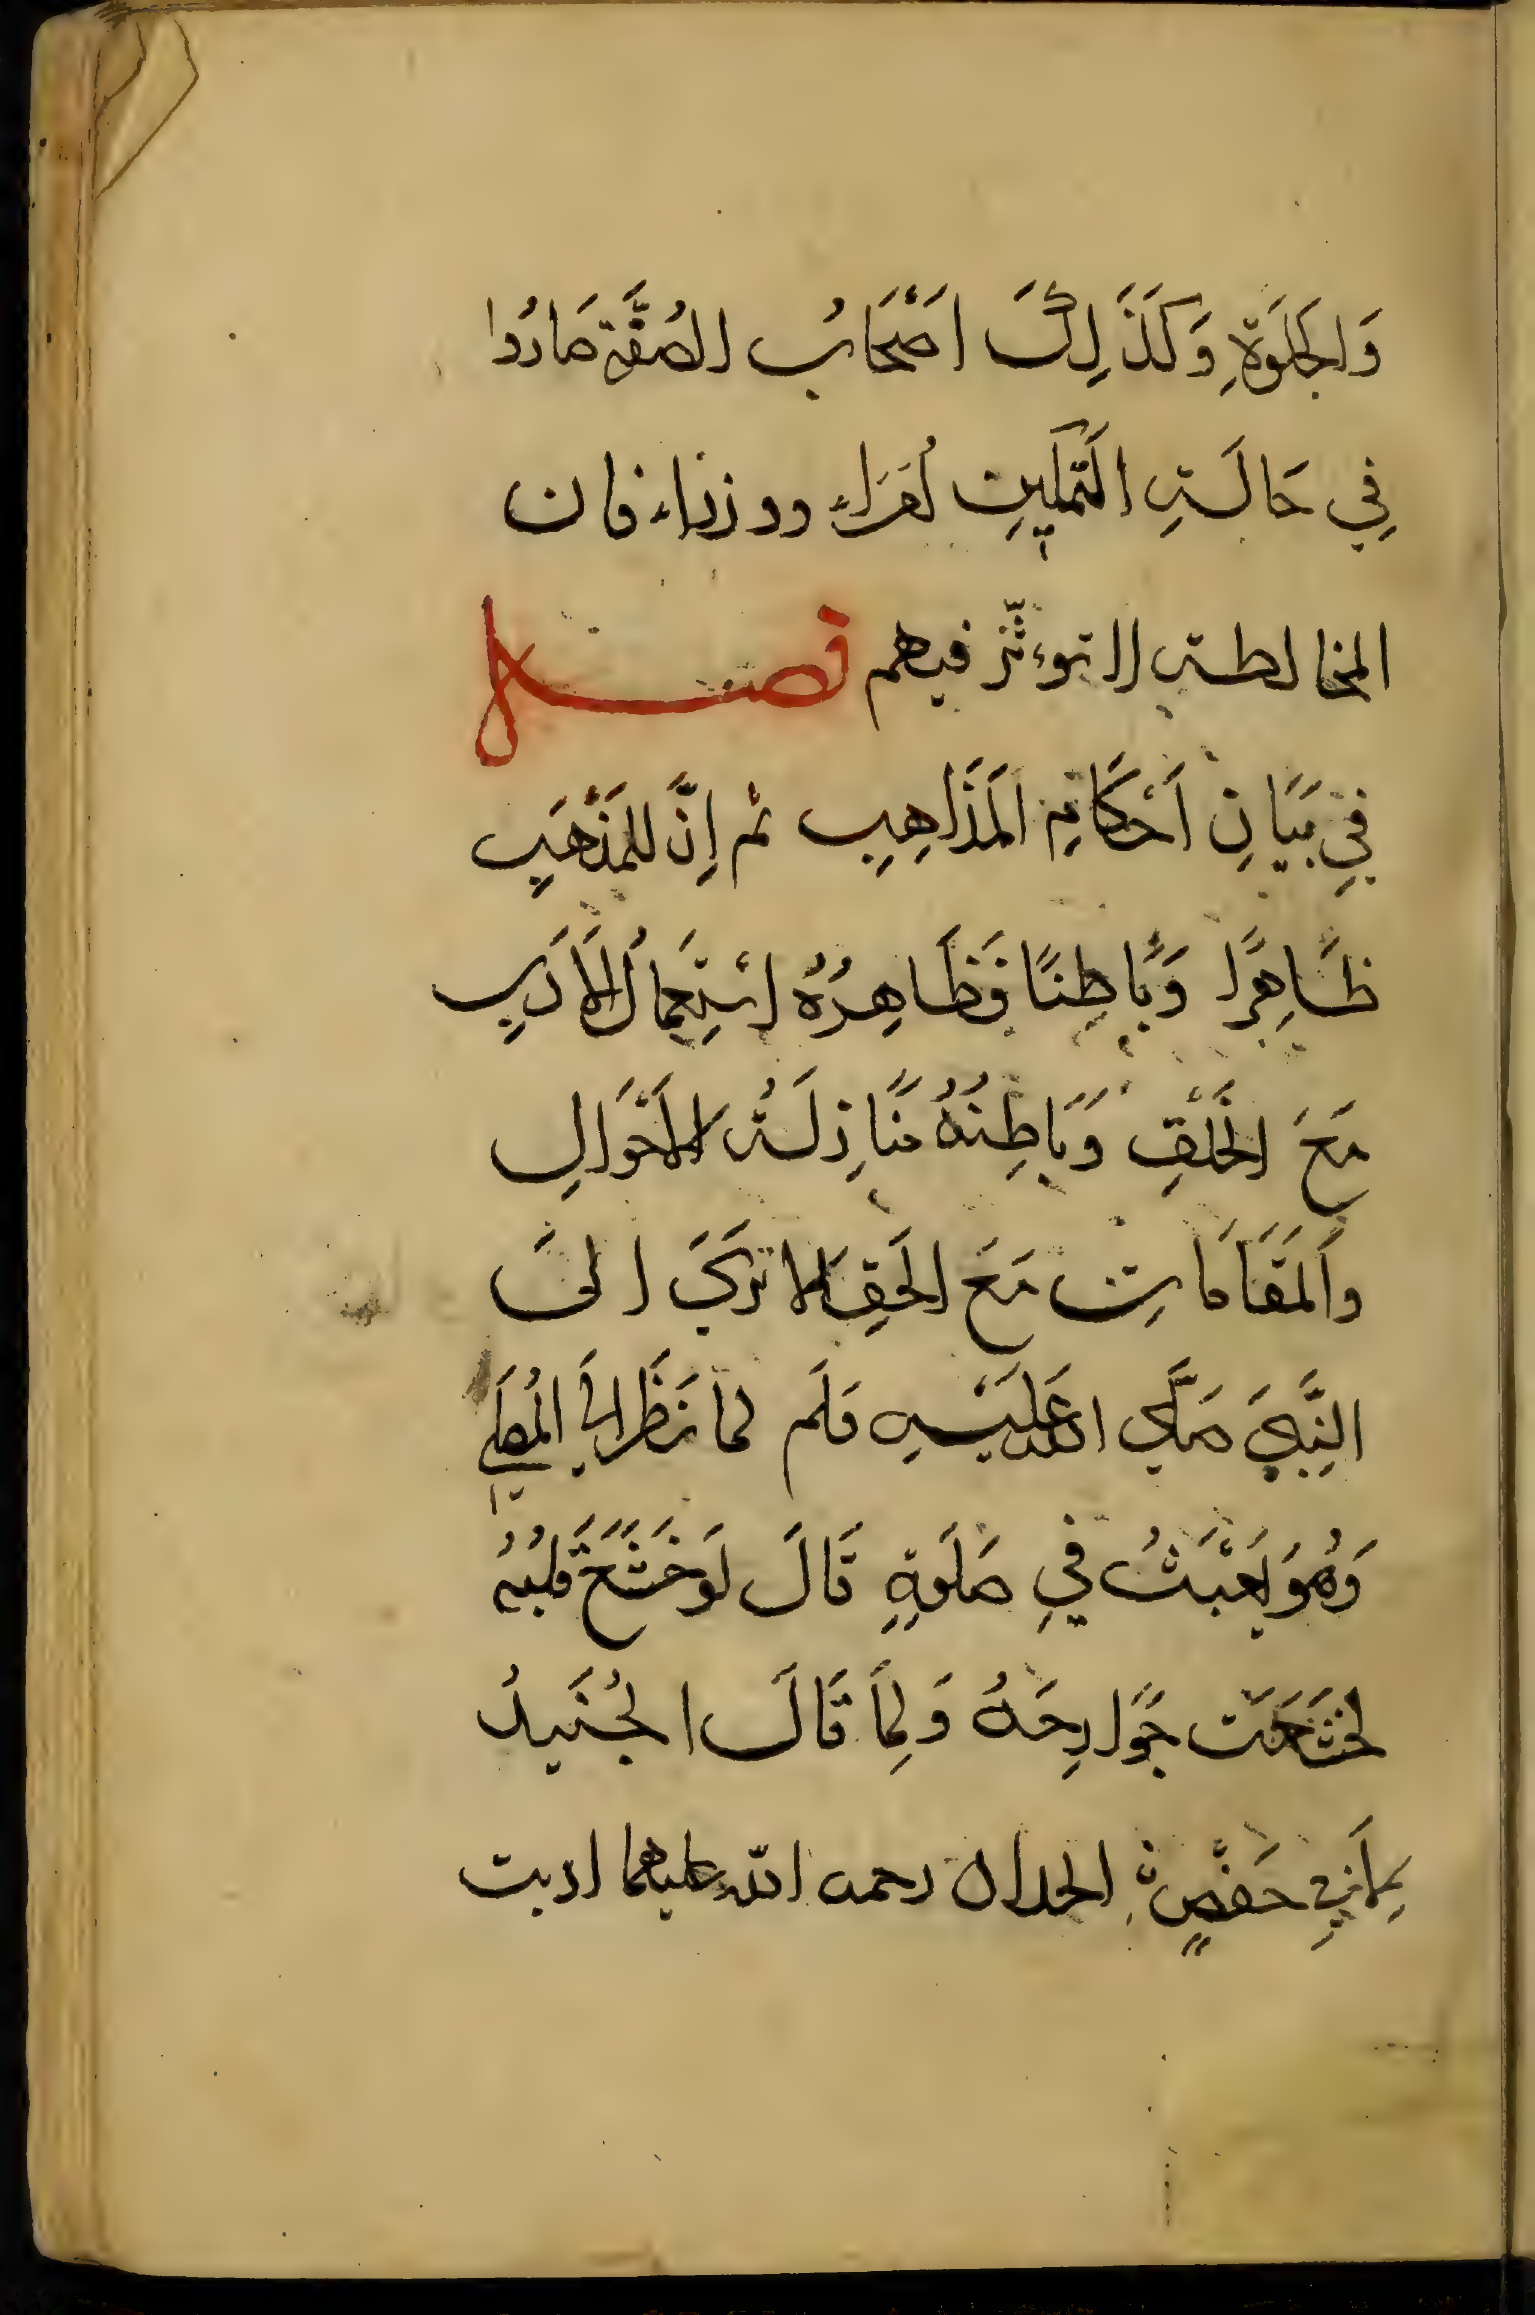 وَالجَلوَةِ وَكَذَلِكَ اَصْحَابُ الصُفَّة صَارُوا
فِي حَالَةِ التَمكِينِ اُمَرَاء ووزراء فان
المخالطة لا توءثّر فيهم فصل
فِي بَيَانِ اَحْكَامِ المَذَاهِبِ ثم اِنَّ للمَذْهَبِ
ظَاهِرًا وَبَاطِنًا فَظَاهِرُهُ اسْتِعمَالُ الاَدَبِ
مَعَ الخَلْقِ وَبَاطِنُهُ مُنَازِلَةُ الاَحْوَالِ
وَالمَقَامَاتِ مَعَ الحَقِ الَا تَرَىَ الىَ
النَّبِيِ صَلَّى الله عَلَيْهِ وَسَلَم لما نَظَرَ اِلَى المُصَلِي
وَهُوَ يَعْبَثُ فِي صَلَوةٍ قَالَ لَو خَشَعَ قَلبُهُ
لخَشَعَت جَوَارِحَهُ وَلِمَا قَالَ الجُنَيدُ
لِاَبِي حَفْصٍ الحداد رحمة الله عليهما ادبت